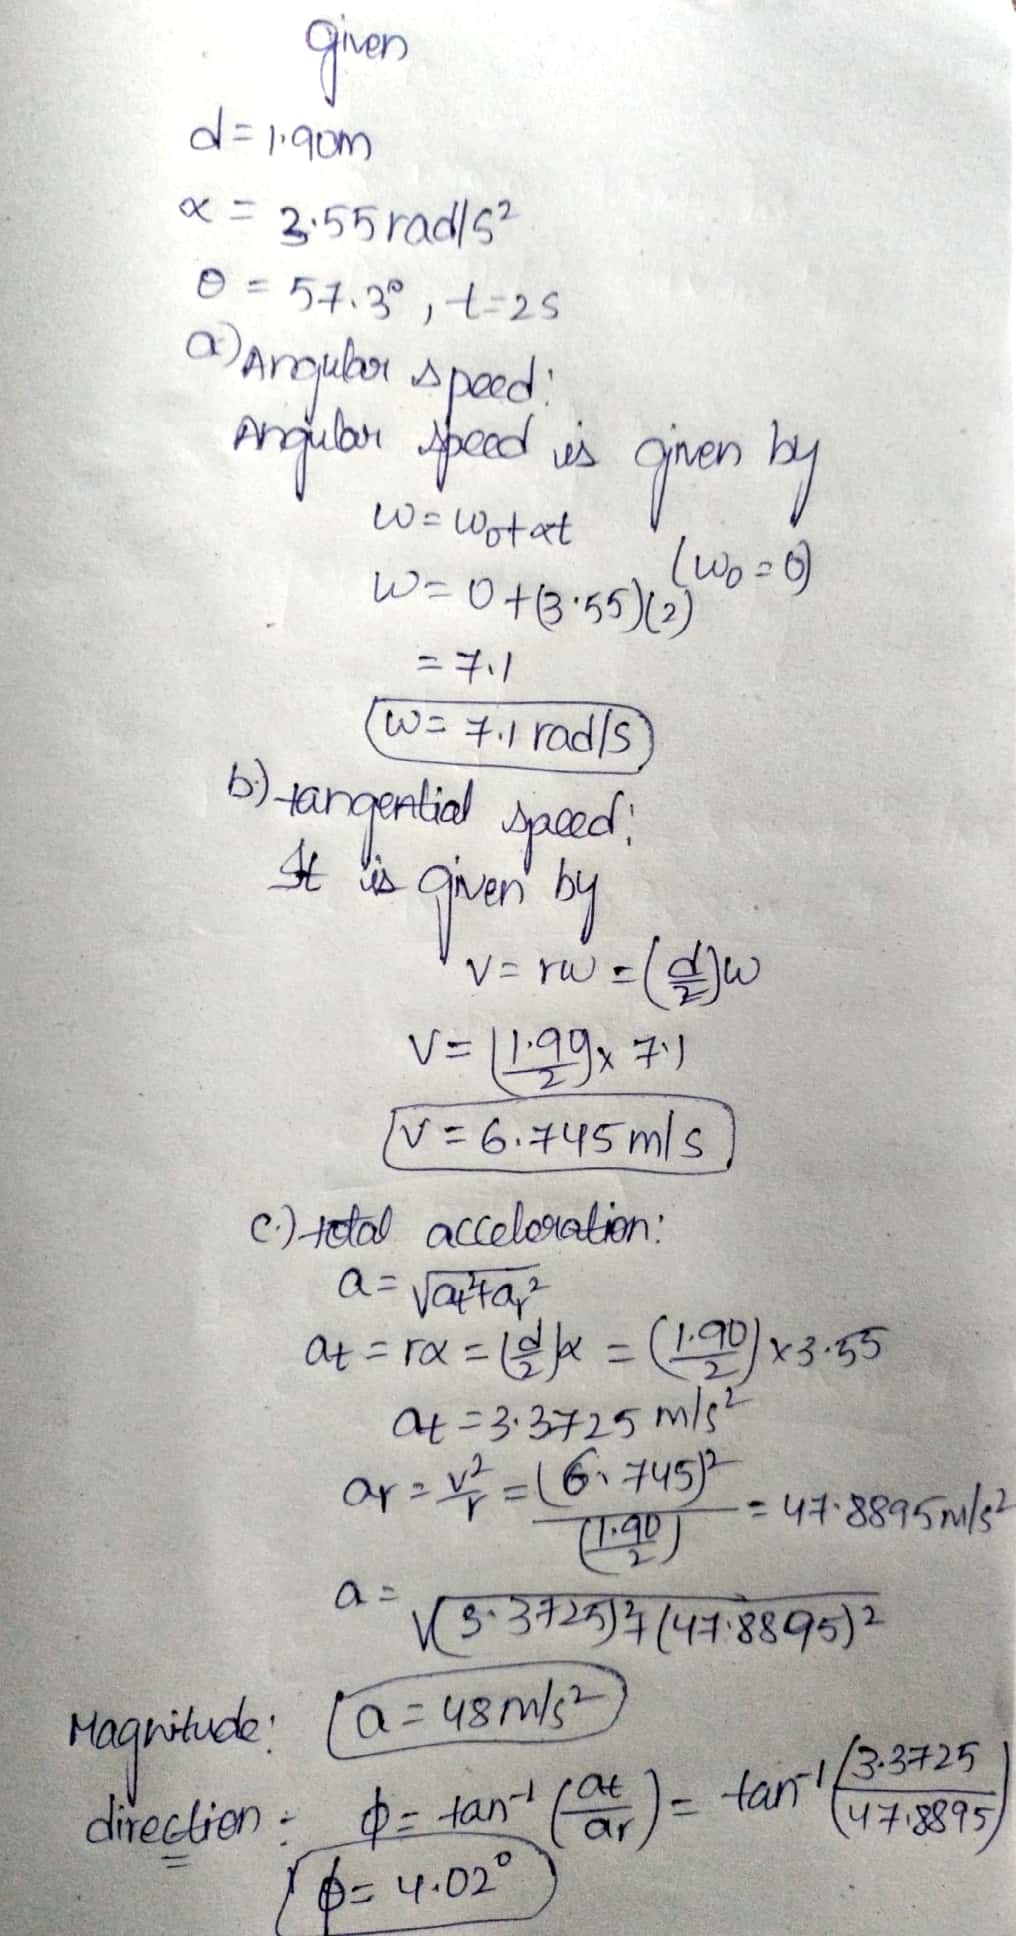 given
d = 1.90m
α = 3.55 rad/s²
θ = 57.3°, t=2s
a) Angular speed:
Angular speed is given by
ω = ω₀+αt
(ω₀ = 0)
ω = 0 + (3.55)(2)
= 7.1
ω = 7.1 rad/s
b.) tangential speed:
It is given by
v = rω = (d/2)ω
v = (1.90/2) x 7.1
v = 6.745 m/s
c.) total acceleration:
a = √at²+ar²
at = rα = (d/2)α = (1.90/2) x 3.55
at = 3.3725 m/s²
ar = v²/r = (6.745)²/(1.90/2) = 47.8895 m/s²
a = √(3.3725)²+(47.8895)²
Magnitude: a = 48 m/s²
direction: ϕ = tan⁻¹(at/ar) = tan⁻¹(3.3725/47.8895)
ϕ = 4.02°